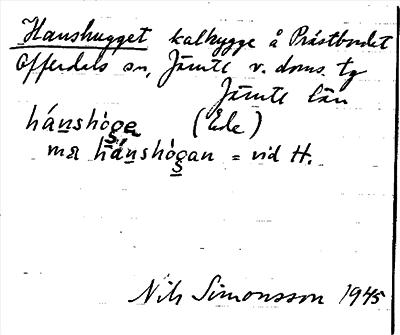 Hanshugget kalhygge å Prästbordet
Offerdals sn, Jämtl v. doms. tg
Jämtl län
hánshòge̥ (Ede)
mæ hánshògan = vid H.
Nils Simonsson 1945